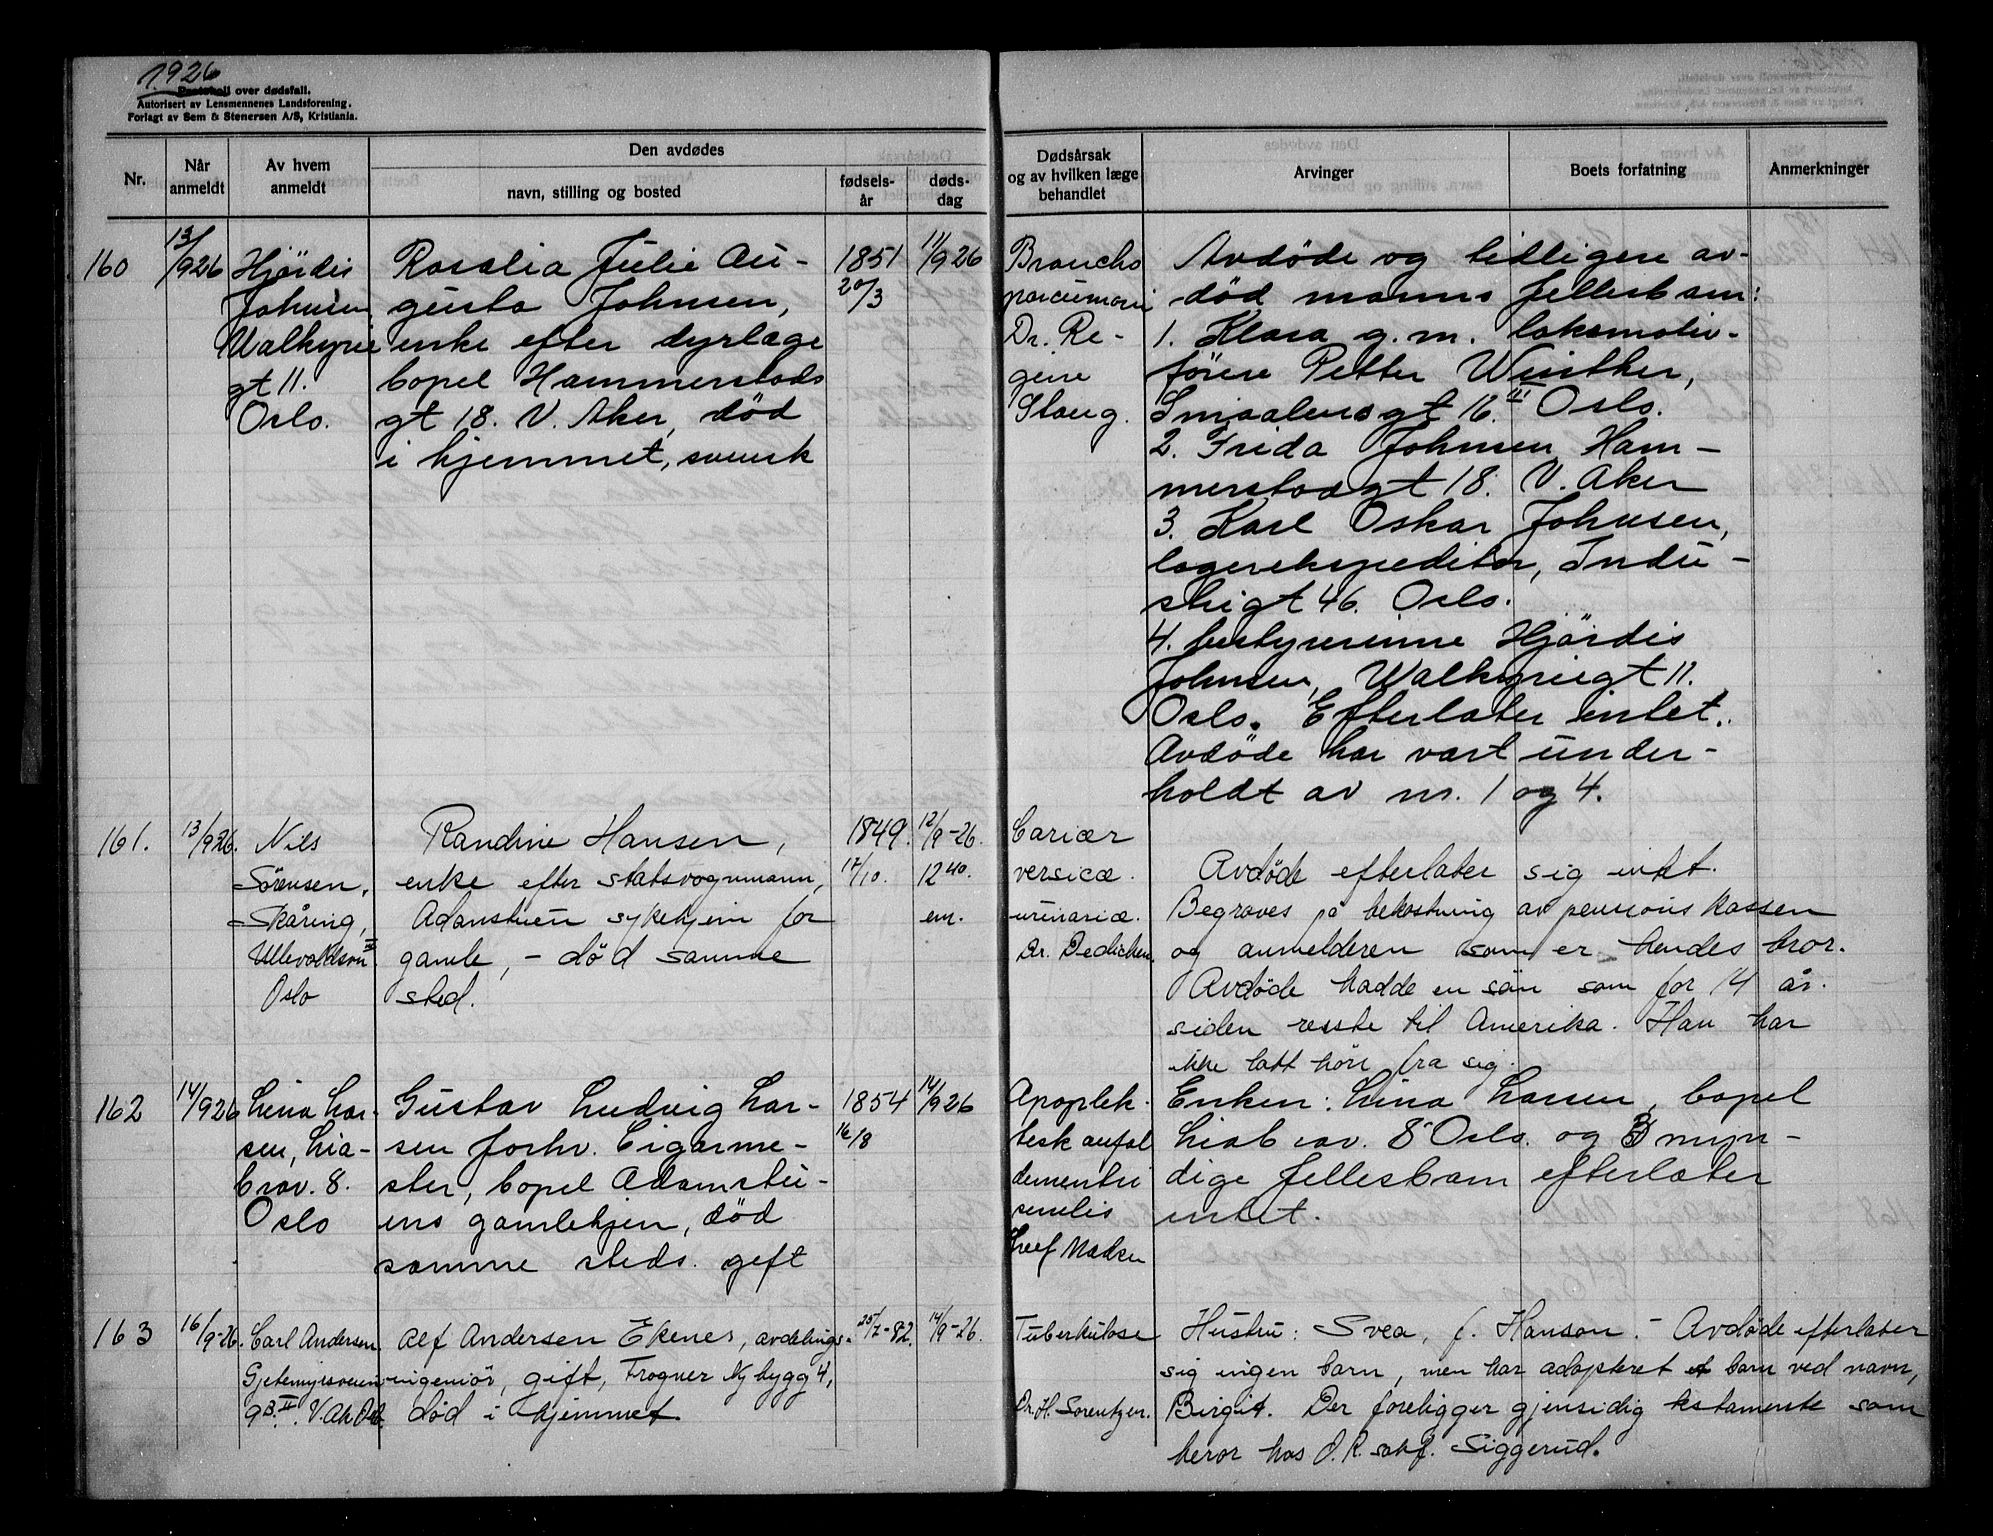 1926
Protokoll over dødsfall.
Autorisert av Lensmennenes Landsforening.
Forlagt av Sem & Stenersen A/S, Kristiania.
Nr.
Når anmeldt
Av hvem anmeldt
Den avdødes
navn, stilling og bosted
fødsels-år
døds-dag
Dødsårsak og av hvilken læge behandlet
Arvinger
Boets forfatning
Anmerkninger
160
13/926
Hjørdis
Johnsen
Walkyrie
gt 11.
Oslo.
Rosalia Julie Au-
gusta Johnsen,
enke efter dyrlæge
bopel Hammerstads
gt 18. V. Aker, død
i hjemmet, svensk
1851
20/3
11/926
Broncho
Dr. Re-
gine
Stang.
Avdøde og tidligere av-
død manns fellesbarn:
1. Klara g.m. lokomotiv-
fører Petter Winther,
Smaalensgt 16. II Oslo.
2. Frida Johnsen, Ham-
merstadgt 18. V. Aker
3. Karl Oskar Johnsen,
lagerekspeditør, Indu-
strigt 46. Oslo.
4. bestyrerinne Hjørdis
Johnsen, Walkyriegt 11.
Oslo. Efterlater intet.
Avdøde har vært under-
holdt av nr. 1 og 4.
161.
13/926.
Nils
Sørensen,
Skåring,
Oslo
Randine Hansen,
enke efter statsvognmann,
Adamstuen sykehjem for
gamle, - død samme
sted.
1849.
17/10.
12/9-26.
12 40.
em.
versicæ.
urinariæ.
Dr. Dedichen.
Avdøde efterlater sig intet.
Begraves på bekostning av pensionskassen
og anmelderen som er hendes bror.
Avdøde hadde en søn som for 14 år.
siden reiste til Amerika. Han har
ikke latt høre fra sig.
162
14/926
Lina Lar-
sen, Lia-
brav. 8.
Oslo
Gustav Ludvig Lar-
sen forhv. Cigarme-
ster, bopel Adamstu-
ens gamlehjem, død
samme steds. gift
1854
16/8
14/926
Apoplek-
tesk anfal
senilis
Leif Madsen
Enken: Lina Larsen, bopel
Liabrav. 8 Oslo. og 3 myn-
dige fellesbarn efterlater
intet.
163
16/9-26.
Carl Andersen.
9 B. II. V. Ak
Alf Andersen Ekenes, avdelings-
ingeniør, gift, Frogner Nybygg 4,
død i hjemmet
25/7-82.
14/9-26.
Tuberkulose
Dr. H. Sorentzen.
Hustru: Svea, f. Hanson. - Avdøde efterlater
sig ingen barn, men har adopteret et barn ved navn,
Birgit. Der foreligger gjensidig testamente som
beror hos O.R.sakf. Siggerud.